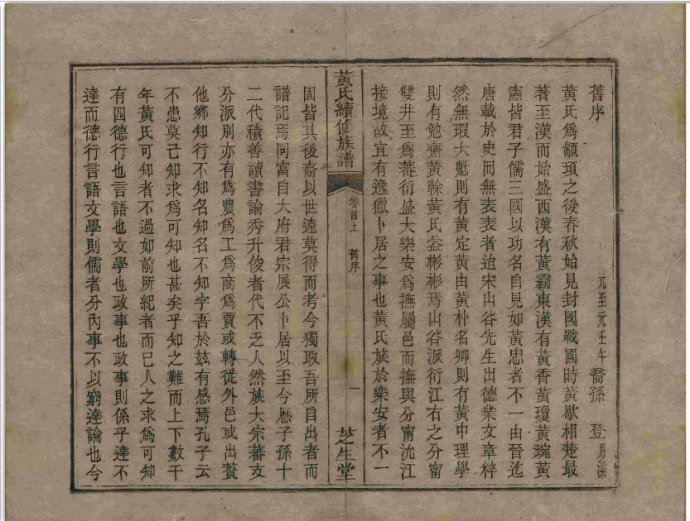 舊序
元至元壬午裔孫 登 月溪
黃氏為顓頊之後春秋始見封國戰國時黃歇相楚最
著至漢而始盛西漢有黃霸東漢有黃香黃瓊黃琬黃
憲皆君子儒三國以功名自見如黃忠者不一由晉迄
唐載於史而無表表者迨宋山谷先生出德業文章粹
然無瑕大魁則有黃定黃由黃朴名卿則有黃中理學
則有勉齋黃榦黃氏益彬彬焉山谷派衍江右之分甯
雙井至為蕃衍盛大樂安為撫屬邑而撫與分甯沈江
接境故宜有逸獵卜居之事也黃氏族於樂安者不一
黃氏續修族譜
卷首上 舊序
一
芝生堂
固皆其後裔以世遠莫得而考今獨取吾所自出者而
譜記焉同富自大府君宗辰公卜居以至今懋子孫十
二代積善讀書論秀升俊者代不乏人然族大宗蕃支
分派別亦有為農為工為商為賈或轉從外邑或出贅
他鄉知行不知名知名不知字吾於茲有感焉孔子云
不患莫己知求為可知也甚矣乎知之難而上下數千
年黃氏可知者不過如前所紀者而已人之求為可知
有四德行也言語也文學也政事也政事則係乎達不
達而德行言語文學則儒者分內事不以窮達論也今